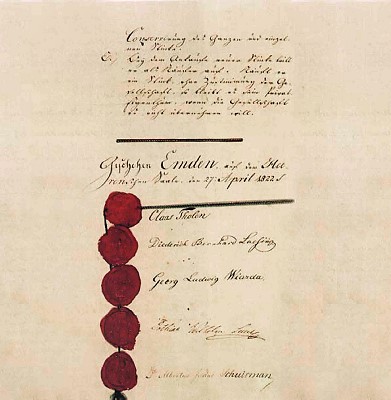 Conservirung des Ganzen und einzel-
nen Stücke.
Bey dem Ankaufe eines Stücks tritt
er als Käufer auf. Kauft er
ein Stück ohne Zustimmung der Ge-
sellschaft, so bleibt es sein Privat
Eigenthum, wenn die Gesellschaft
es nicht übernehmen will.
Geschehen Emden, auf dem Her-
renschen Saale, den 27 April 1822.
Claas Tholen
Diederich Bernhard
Georg Ludwig Wiarda
Schuirman